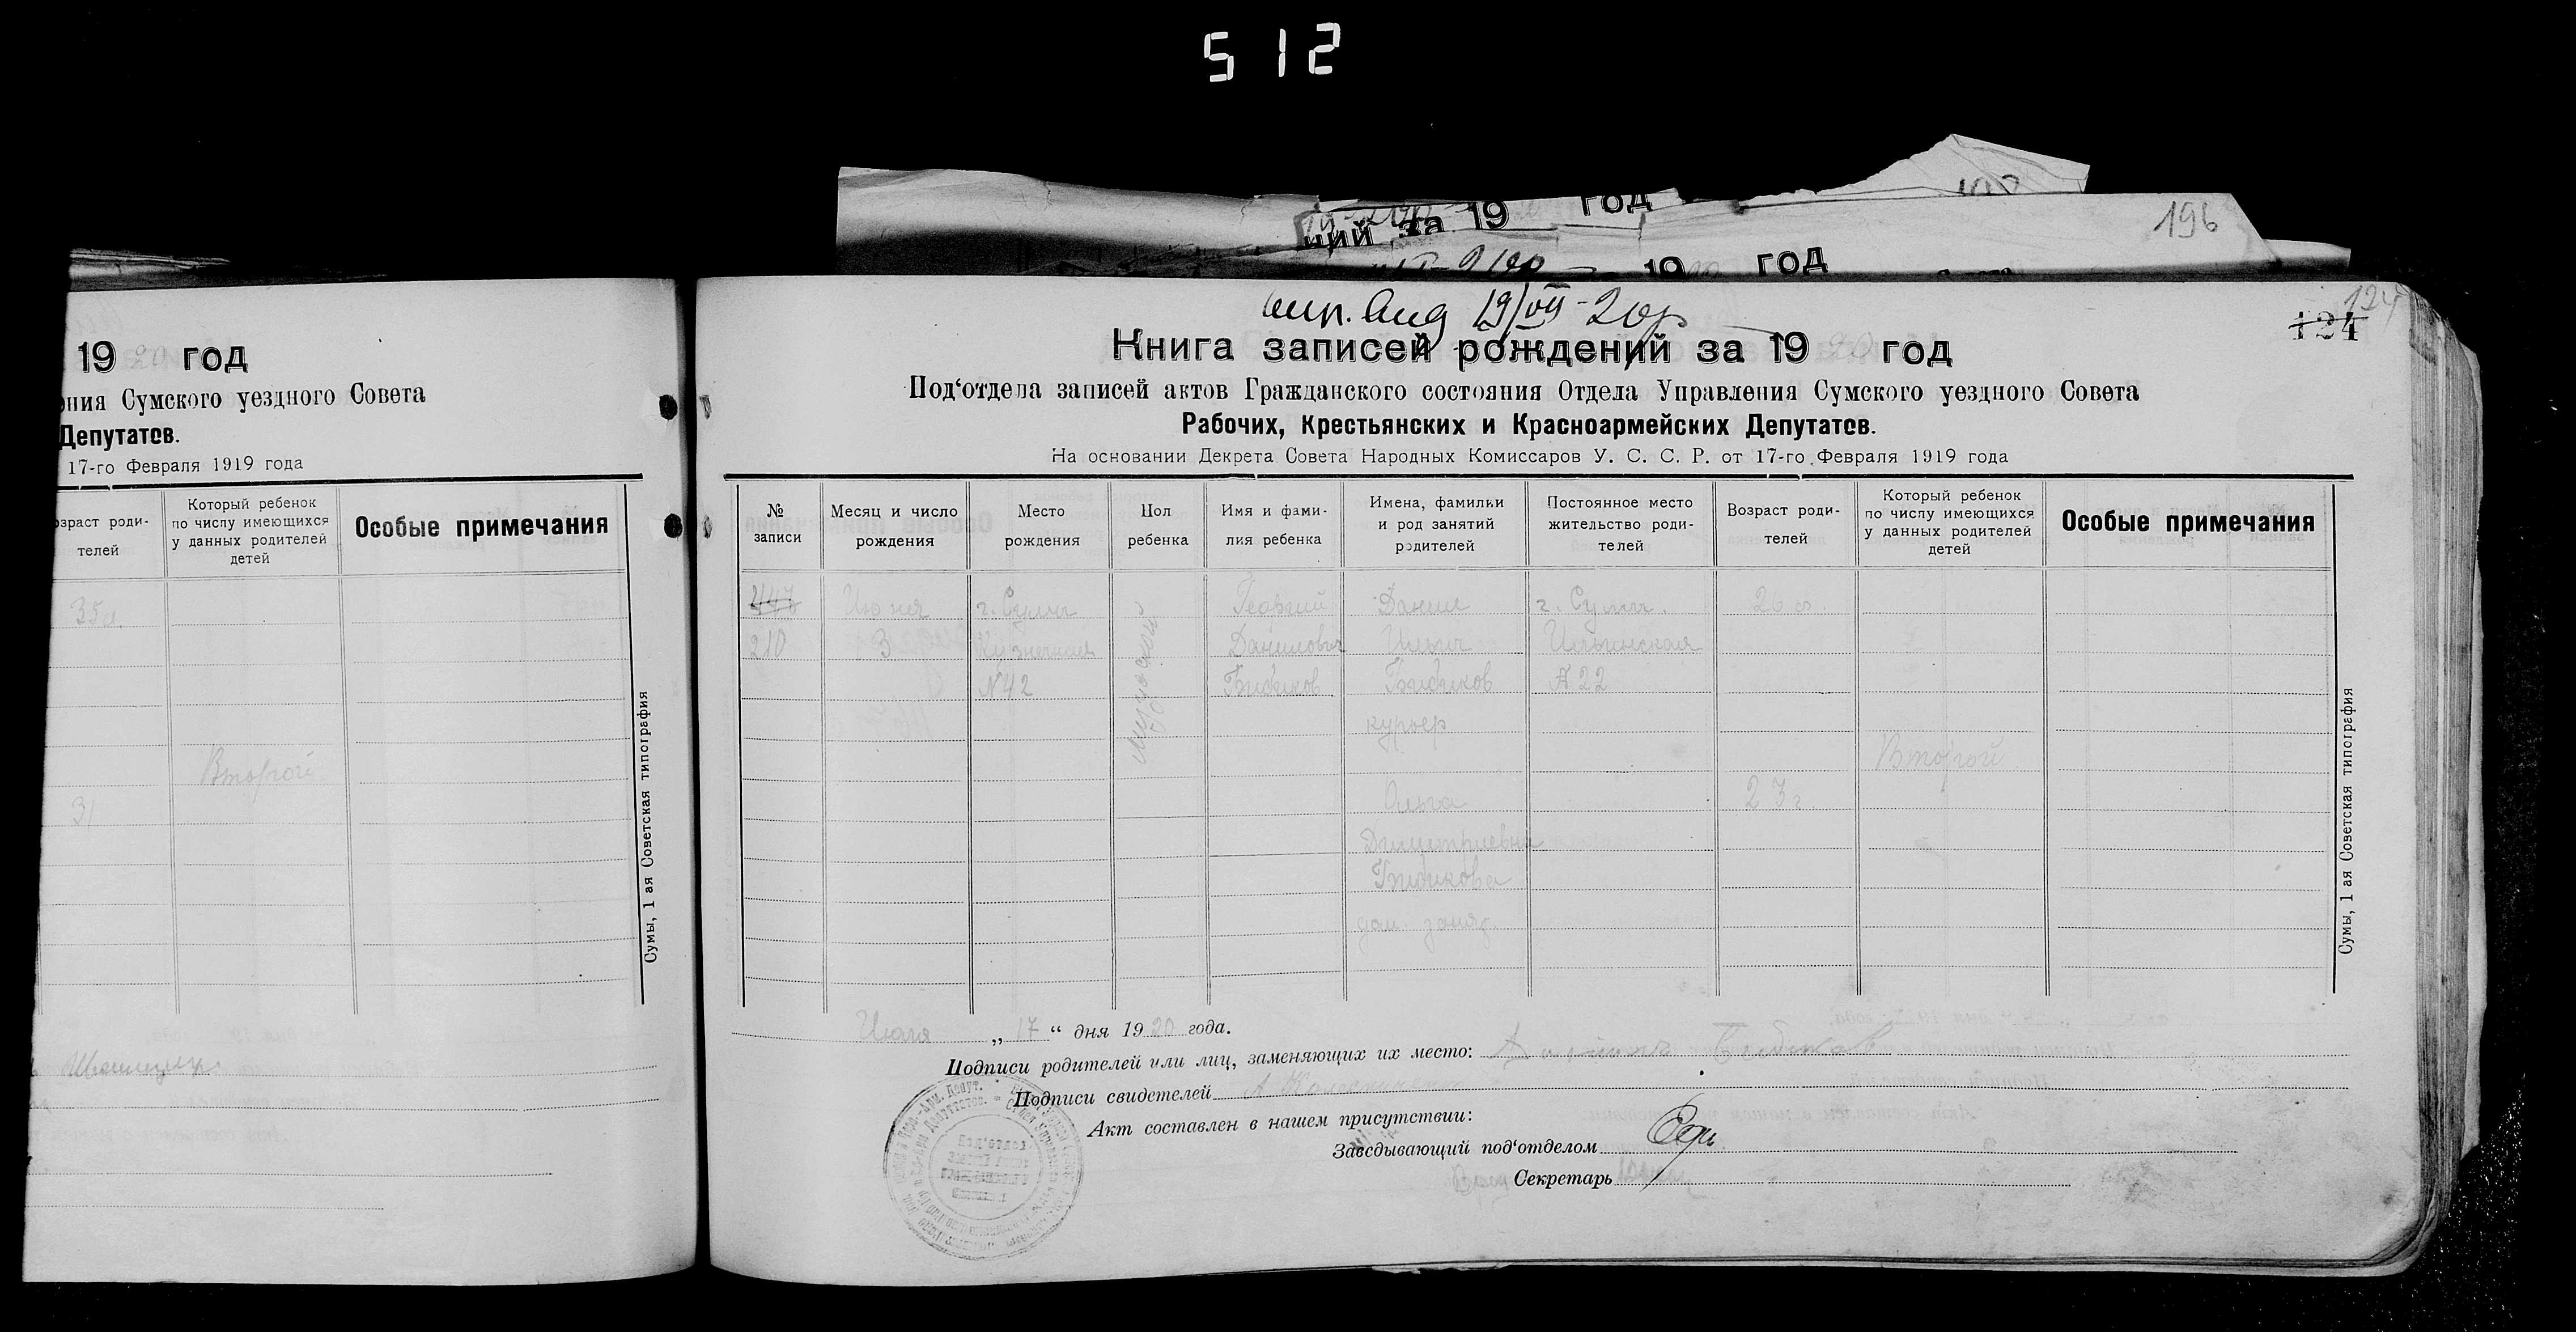 512
ций за 19 год
196
19 год
19 20 год
ния Сумского уездного Совета
Депутатов.
17-го Февраля 1919 года
озраст роди-
телей
Который ребенок
по числу имеющихся
у данных родителей
детей
Особые примечания
35 л.
Второй
31
Сумы, 1 ая Советская типография
19/VII-20 р
124
124
Книга записей рождений за 19 20 год
Под‘отдела записей актов Гражданского состояния Отдела Управления Сумского уездного Совета
Рабочих, Крестьянских и Красноармейских Депутатов.
На основании Декрета Совета Народных Комиссаров У. С. С. Р. от 17-го Февраля 1919 года
№
записи
Месяц и число
рождения
Место
рождения
Пол
ребенка
Имя и фами-
лия ребенка
Имена, фамилии
и род занятий
родителей
Постоянное место
жительство роди-
телей
Возраст роди-
телей
Который ребенок
по числу имеющихся
у данных родителей
детей
Особые примечания
210
Июня
3
г. Сумы
Кузнечная
№ 42
мужской
Георгий
Данилович
Бибиков
Данил
Ильич
Бибиков
курьер
Ольга
Дмитриевна
Бибикова
дом. заняд.
г. Сумы.
Ильинская
№ 22
26 л.
23 г.
Второй
Сумы, 1 ая Советская типография
Июля „ 17 “ дня 19 20 года.
Подписи родителей или лиц, заменяющих их место: Бибиков
Подписи свидетелей
Акт составлен в нашем присутствии:
Заведывающий под‘отделом
Секретарь